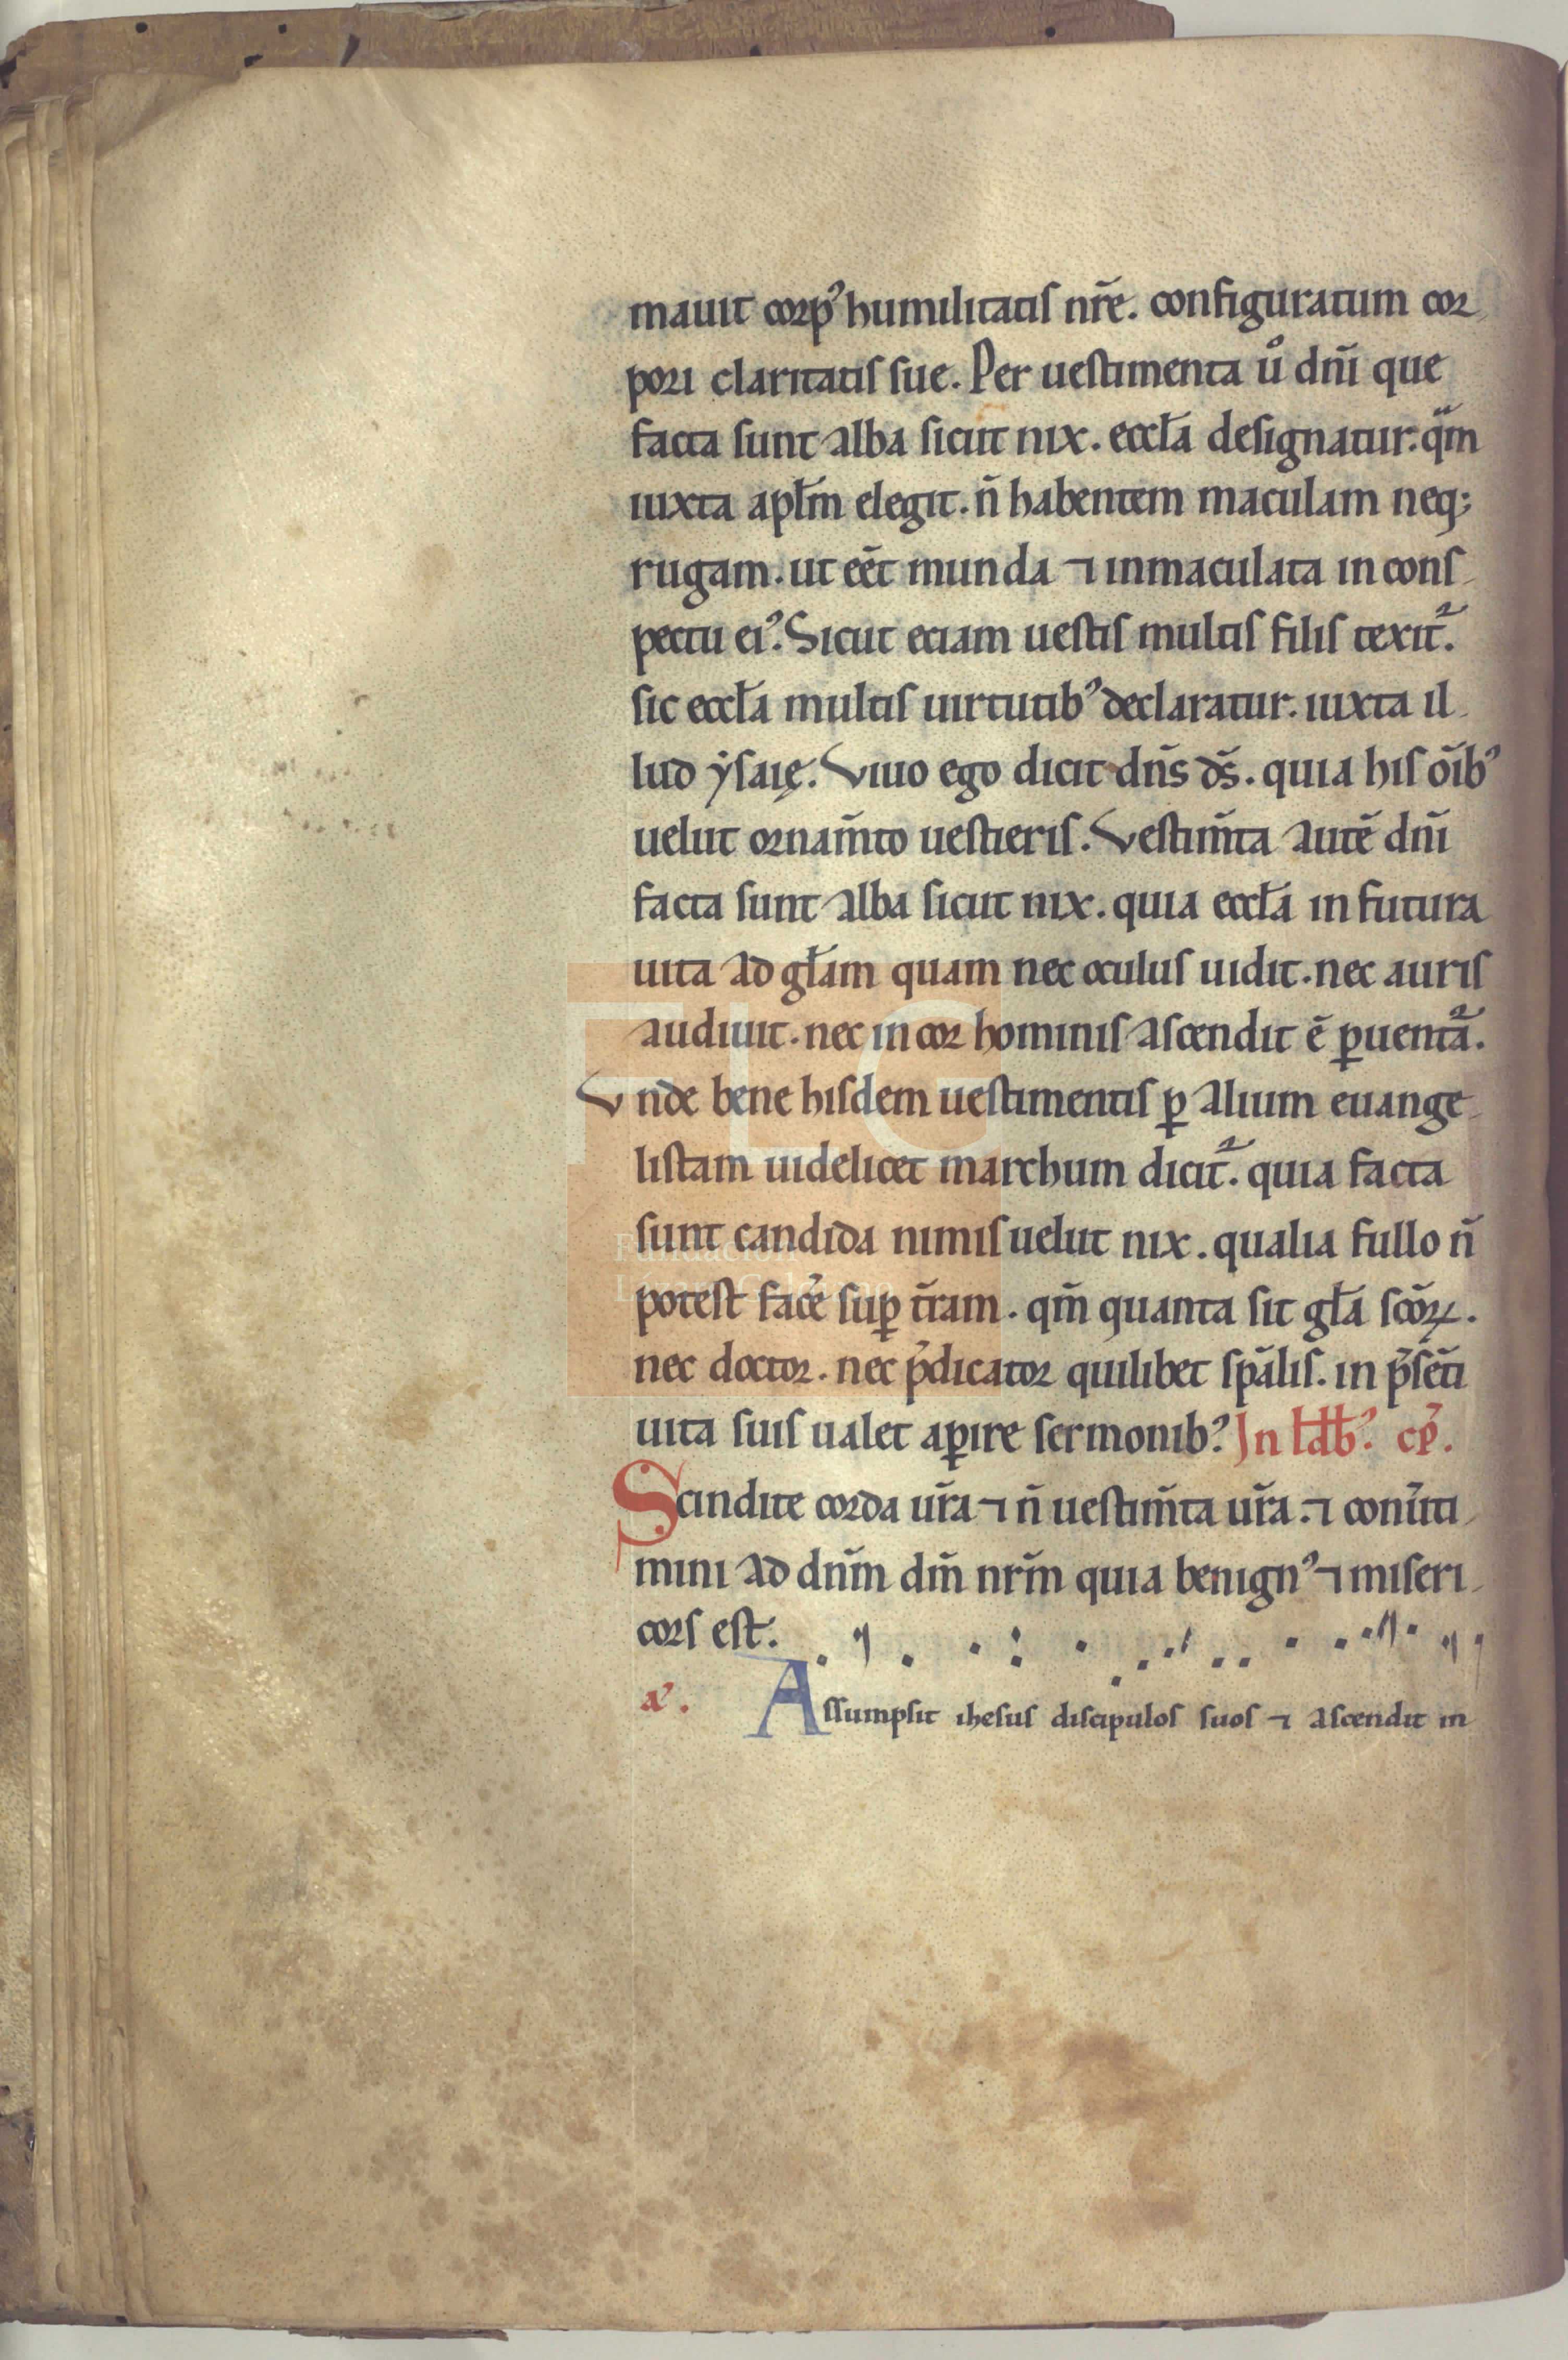 mauit corpꝰ humilitatis nr̃e. configuratum cor
pori claritatis sue. Per uestimenta uͦ dñi que
facta sunt alba sicut nix. eccł̃a designatur. qᷓm
iuxta apł̃m elegit. ñ habentem maculam neq;
rugam. ut eẽt munda ⁊ inmaculata in cons
pectu eiꝰ. Sicut eciam uestis multis filis texit᷑.
sic eccł̃a multis uirtutibꝰ declaratur. iuxta il
lud ẏsaię. Viuo ego dicit dñs ds̃. quia his oĩbꝰ
uelut ornam̃to uestieris. Vestim̃ta autẽ dñi
facta sunt alba sicut nix. quia eccł̃a in futura
uita ad gł̃am quam nec oculus uidit. nec auris
audiuit. nec in cor hominis ascendit ẽ ꝑuenta᷑.
Vnde bene hisdem uestimentis ꝑ alium euange
listam uidelicet marchum dicit᷑. quia facta
sunt candida nimis uelut nix. qualia fullo ñ
potest fac̃e suꝑ t̃ram. qm̃ quanta sit gł̃a sc̃oꝝ.
nec doctor. nec p̃dicator quilibet sp̃alis. in p̃sẽti
uita suis ualet aꝑire sermonibꝰ. In ldbꝰ. cp̃.
Scindite corda ur̃a ⁊ ñ uestim̃ta ur̃a. ⁊ conũti
mini ad dnm̃ dm̃ nrm̃ quia benignꝰ ⁊ miseri
cors est.
a᷑. Assumpsit ihesus discipulos suos ⁊ ascendit in
FLG